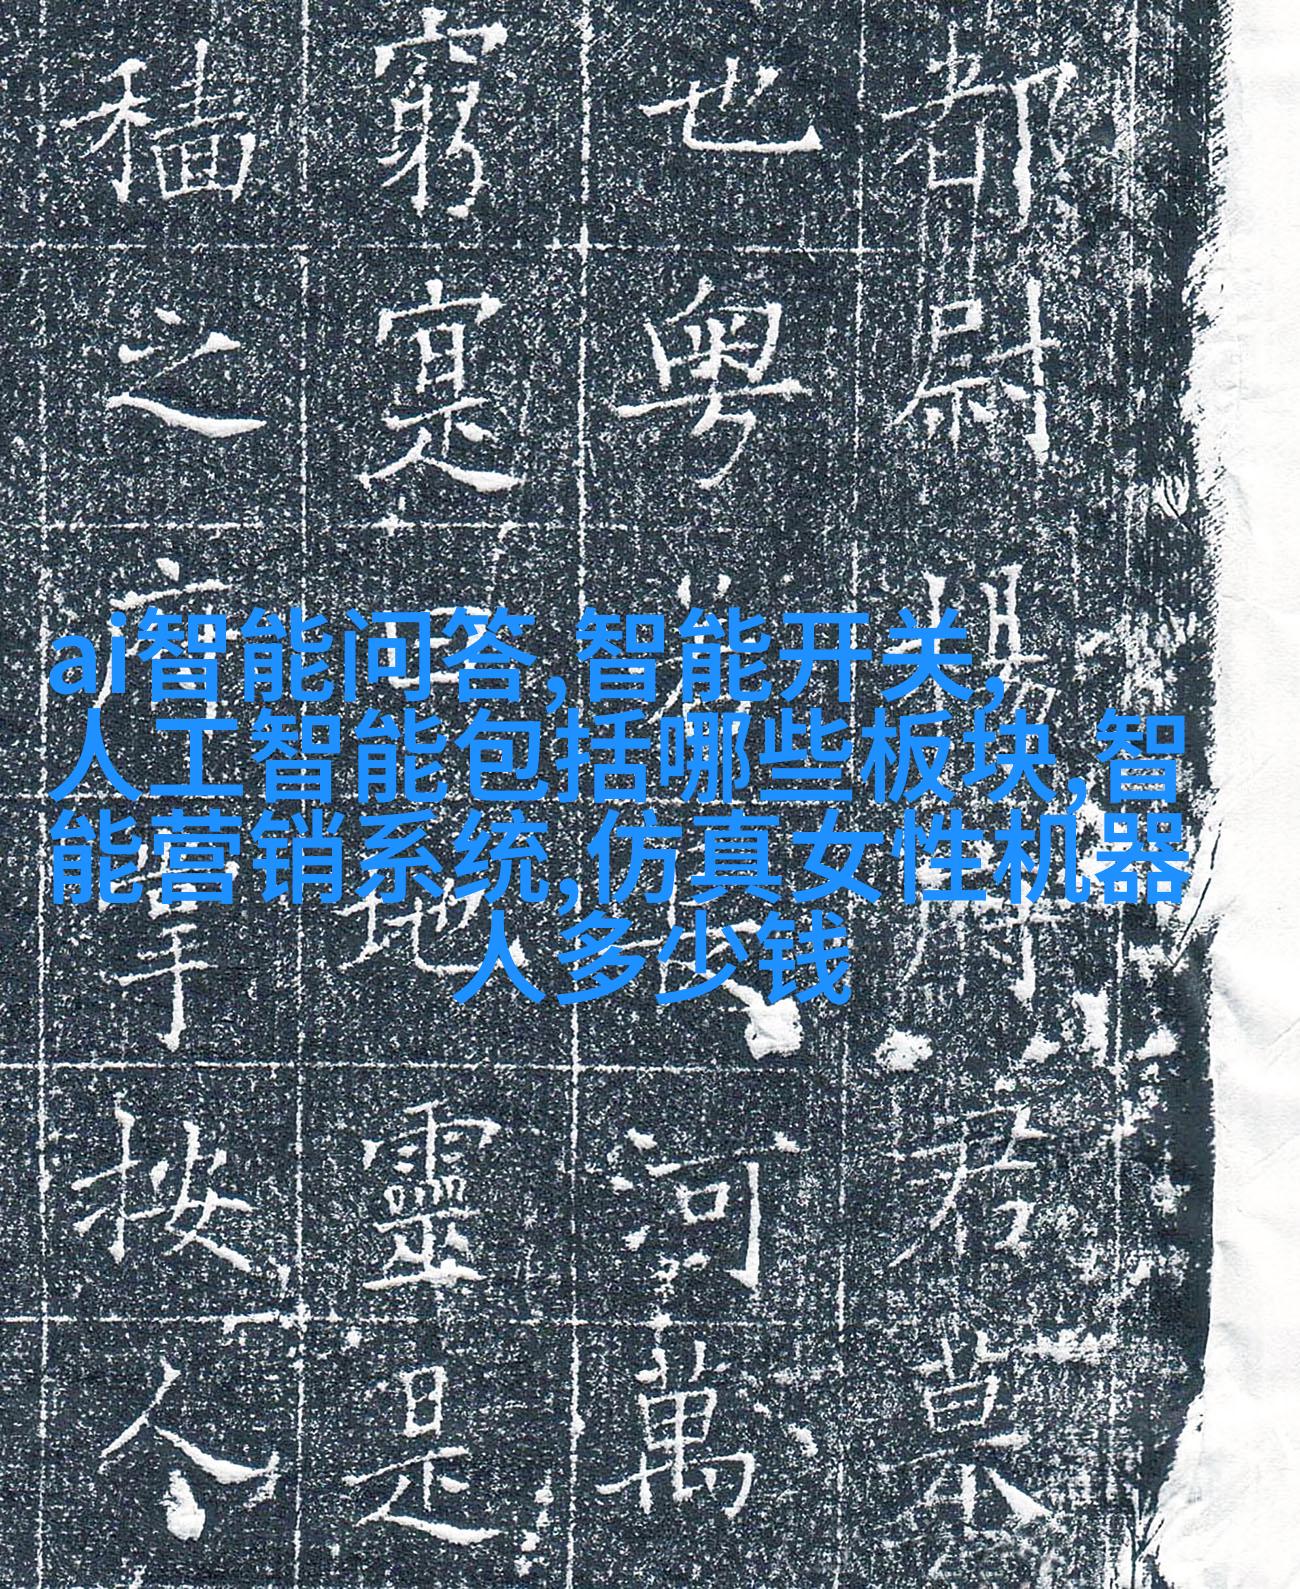 ai智能问答,智能开关,
人工智能包括哪些板块,智
能营销系统,仿真女性机器
人多少钱
都尉楊君
也粵若河萬
窮寔曰地靈是
穡之按人